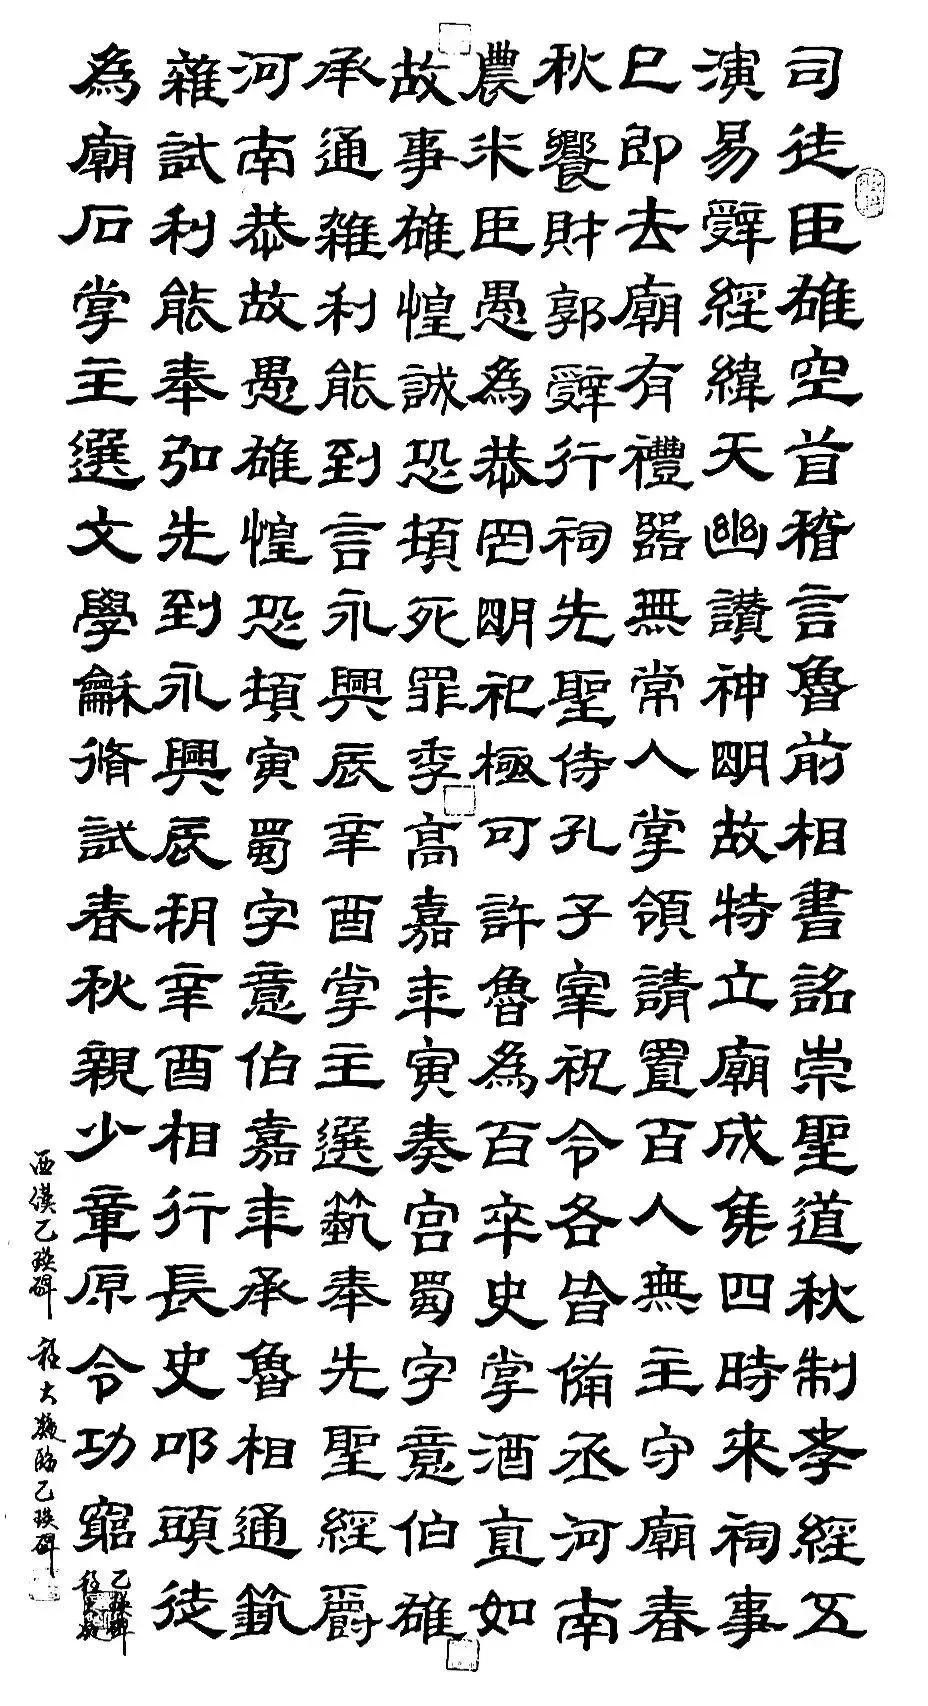 司徒臣雄空首稽言魯前相書詔崇聖道秋制孝經五
演易辭經緯天幽讚神明故特立廟成侯四時來祠事
已即去廟有禮器無常人掌領請置百人無主守廟春
秋饗財郭辭行祠先聖侍孔子宰祝令各皆備丞河南
農米臣愚為恭罔明祀極可許魯為百卒史掌酒直如
故事雄惶誠恐頓死罪季高嘉年寅奏宮蜀字意伯雄
承通雜利能到言永興辰辛酉掌主選藝奉先聖經爵
河南恭故愚雄惶恐頓寅蜀字意伯嘉年承魯相通藝
雜試利能奉弘先到永興辰朔辛酉相行長史叩頭徒
為廟石掌主選文學龢脩試春秋親少章原令功窮
乙瑛碑
西漢乙瑛碑 程大凝臨乙瑛碑